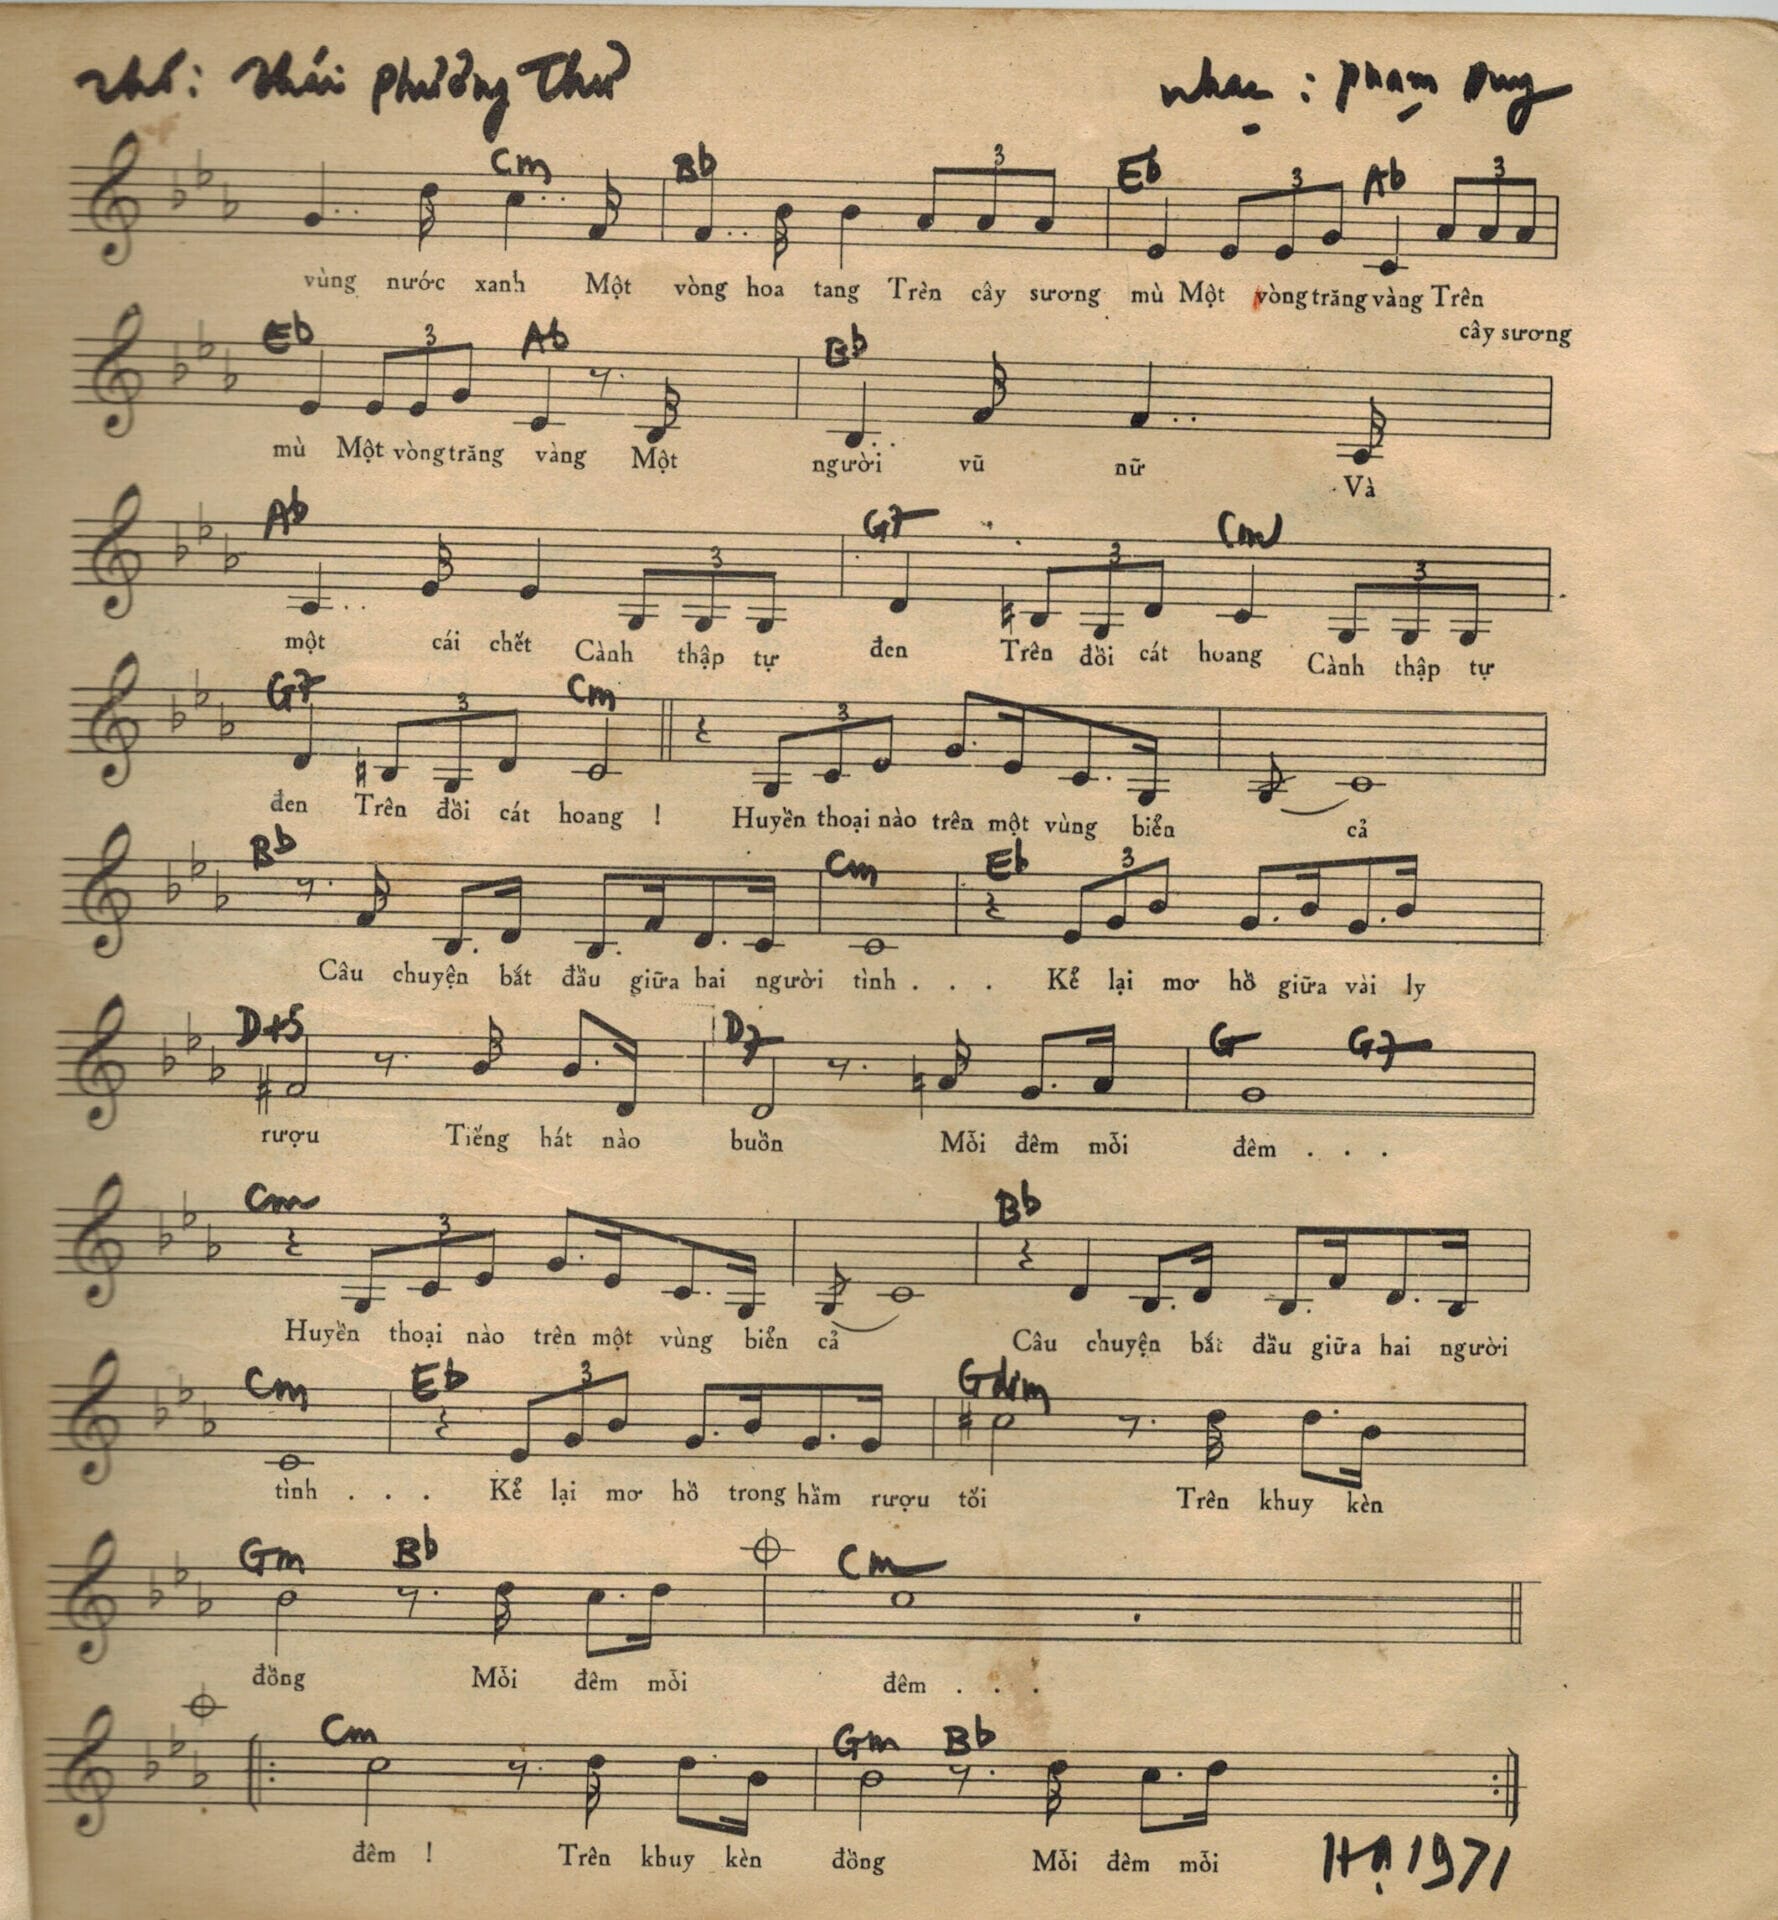 thơ: Thái Phương Thư
nhạc : phạm Duy
Cm Bb 3 Eb 3 Ab 3
vùng nước xanh Một vòng hoa tang Trên cây sương mù Một vòng trăng vàng Trên
cây sương
Eb 3 Ab Bb
mù Một vòng trăng vàng Một người vũ nữ Và
Ab 3 G7 3 Cm 3
một cái chết Cành thập tự đen Trên đồi cát hoang Cành thập tự
G7 3 Cm 3
đen Trên đồi cát hoang ! Huyền thoại nào trên một vùng biển cả
Bb Cm Eb 3
Câu chuyện bắt đầu giữa hai người tình . . . Kể lại mơ hồ giữa vài ly
D+5 D7 G G7
rượu Tiếng hát nào buồn Mỗi đêm mỗi đêm . . .
Cm 3 Bb
Huyền thoại nào trên một vùng biển cả Câu chuyện bắt đầu giữa hai người
Cm Eb 3 Gdim
tình . . . Kể lại mơ hồ trong hầm rượu tối Trên khuy kèn
Gm Bb Cm
đồng Mỗi đêm mỗi đêm . . .
Cm Gm Bb
đêm ! Trên khuy kèn đồng Mỗi đêm mỗi
Hạ 1971